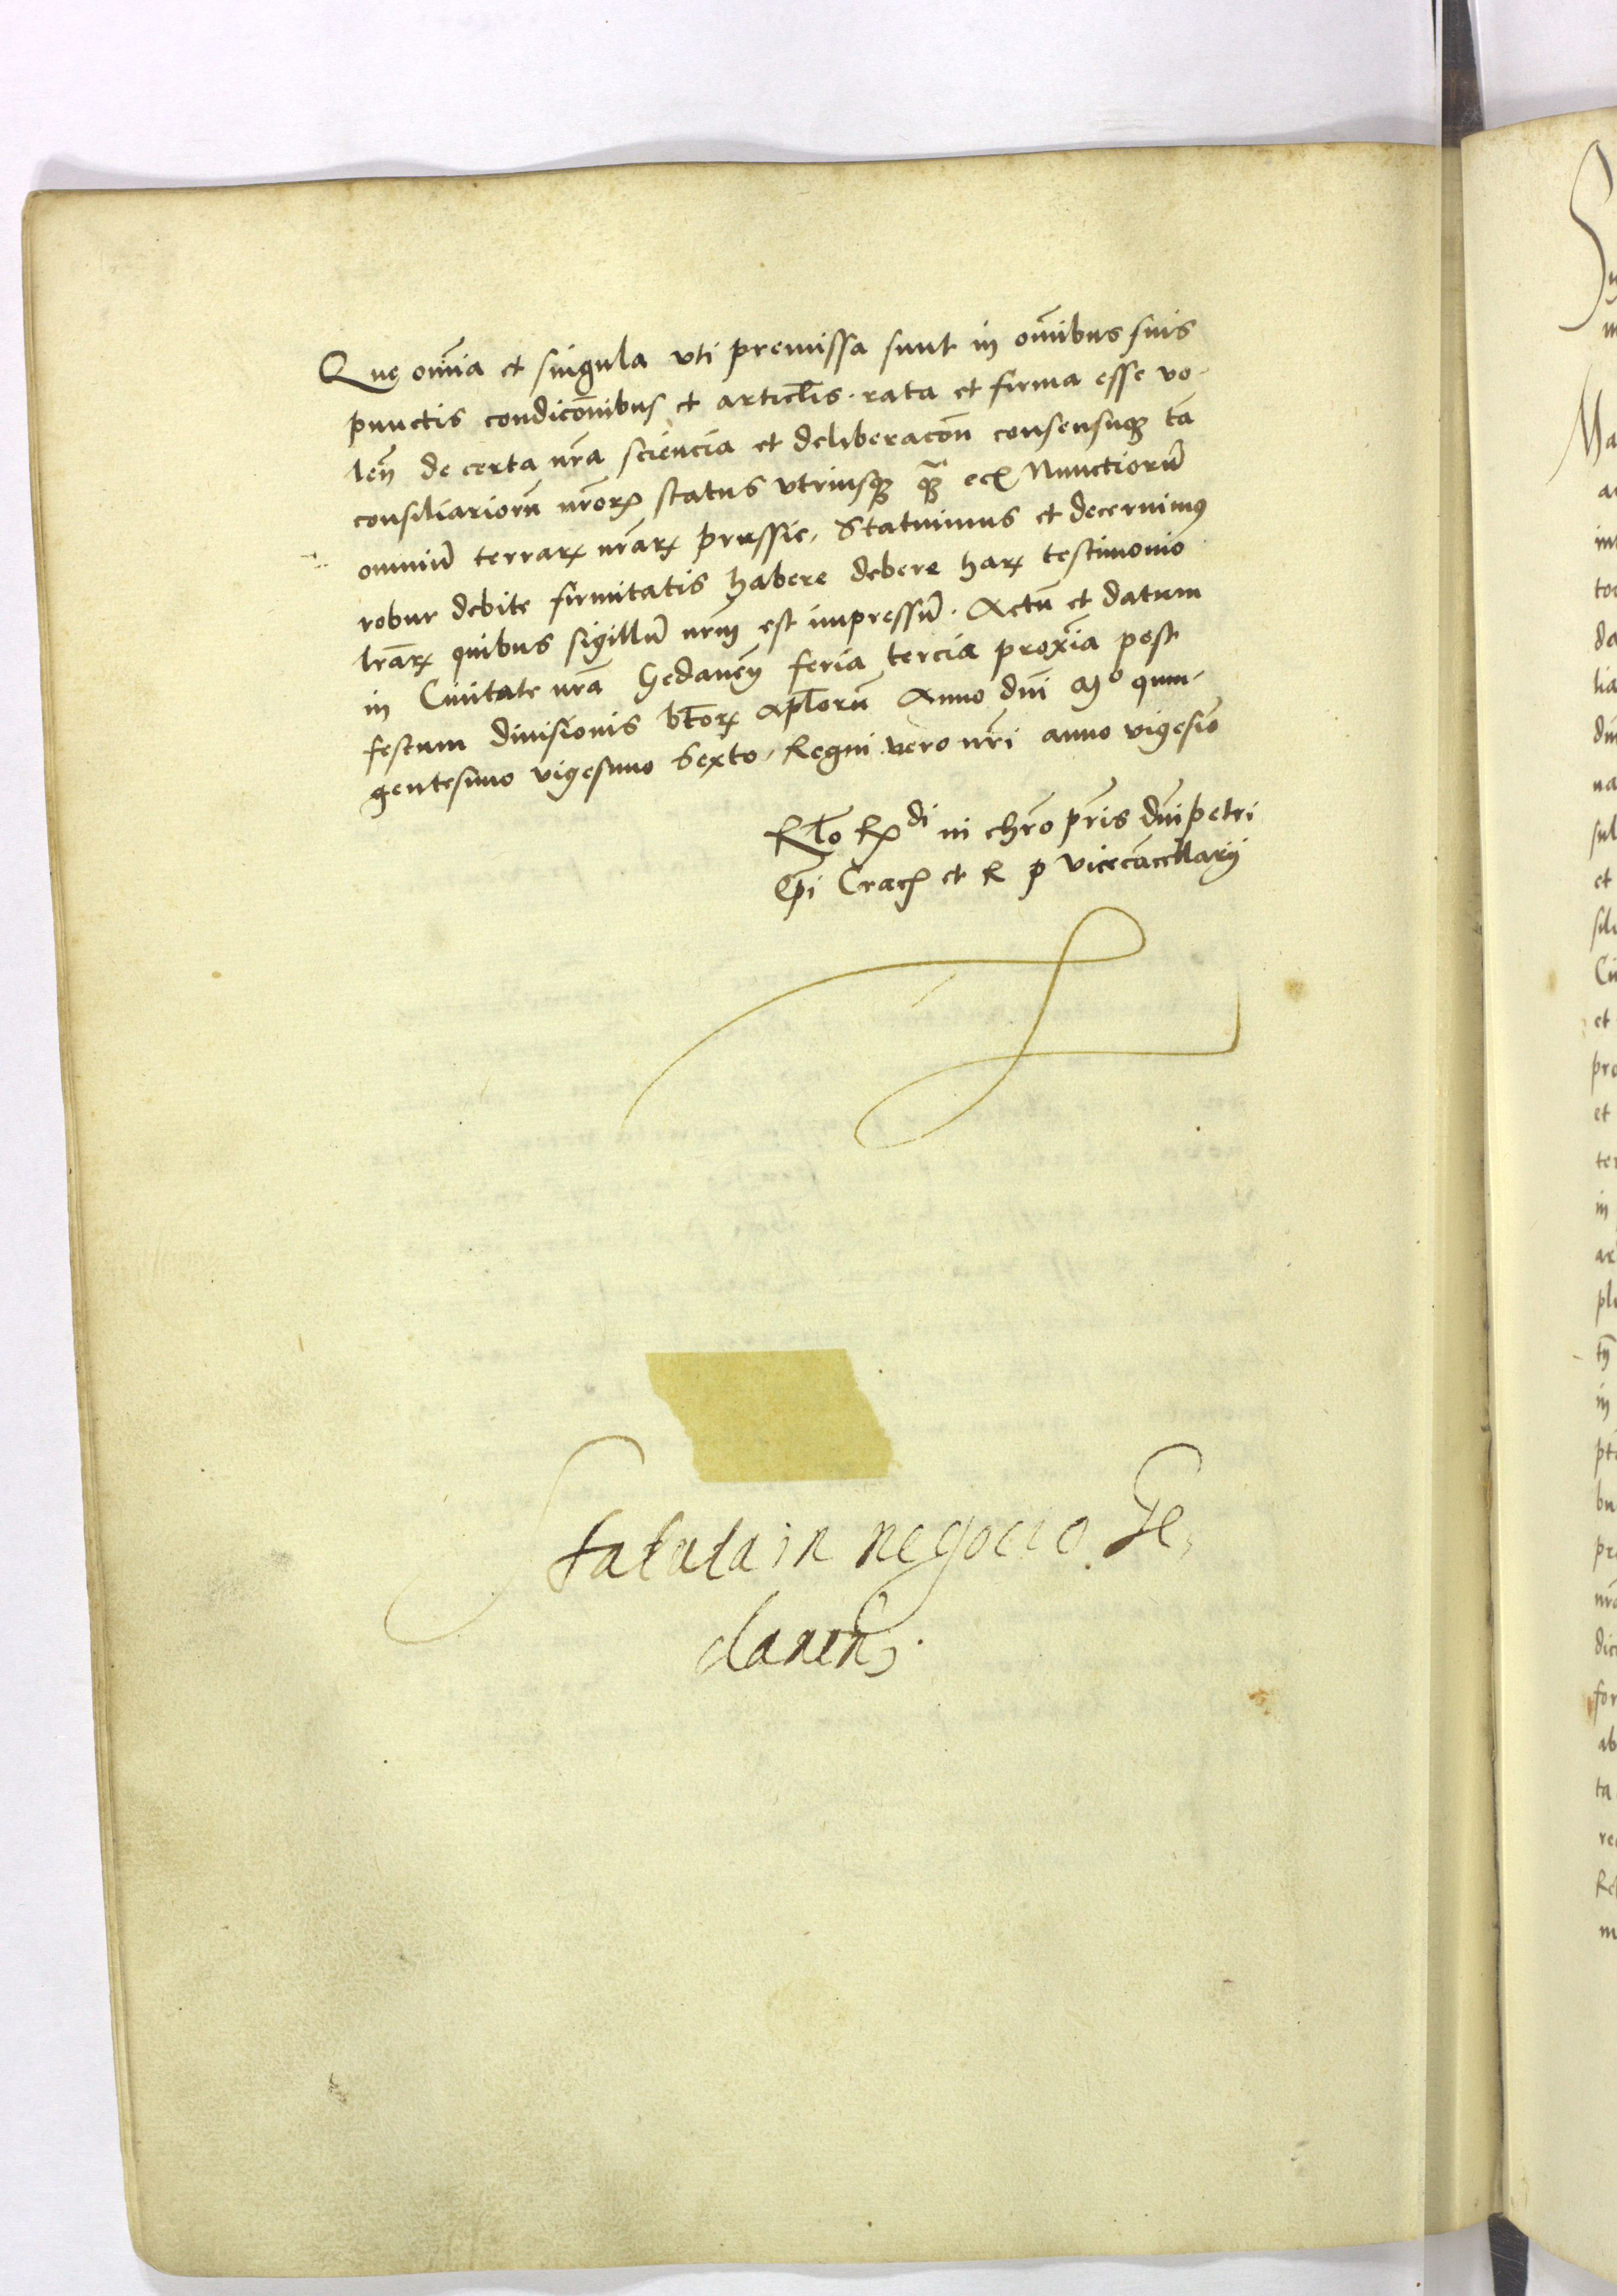 Quę om̄ia et singula vti premissa sunt in om̄ibus suis
punctis condicōnibus et articl̄is. rata et firma esse vo-
len̄ de certa nr̄a sciencia et deliberacōn consensuqꝫ tā
consiliariorū nr̄orꝝ status vtriusqꝫ qꝫ̄ ecꝫ Nunctiorū
omniū terrarꝝ nr̄arꝝ prussie, Statuimus et decernimꝰ
robur debite firmitatis habere debere harꝝ testimonio
lr̄arꝝ quibus sigillū nr̄m est impressū. Actū et datum
in Ciuitate nr̄a Gedanen̄ feria tercia proxīa post
festum diuisionis bt̄orꝝ apl̄orū Anno dn̄i Mº quin-
gentesimo vigesimo Sexto, Regni vero nr̄i anno vigesīo
Rl̄o Rꝑdi in chr̄o pr̄is dn̄i petri
Ep̄i Cracꝫ et R p vicecācellarij
Statuta in negocio Ge,
danen̄.
S
Ma
in
to
da
lia
na
sul
et
sili
et
pro
et
in
pl
in
bu
pr
nr̄a
for
ab
ta